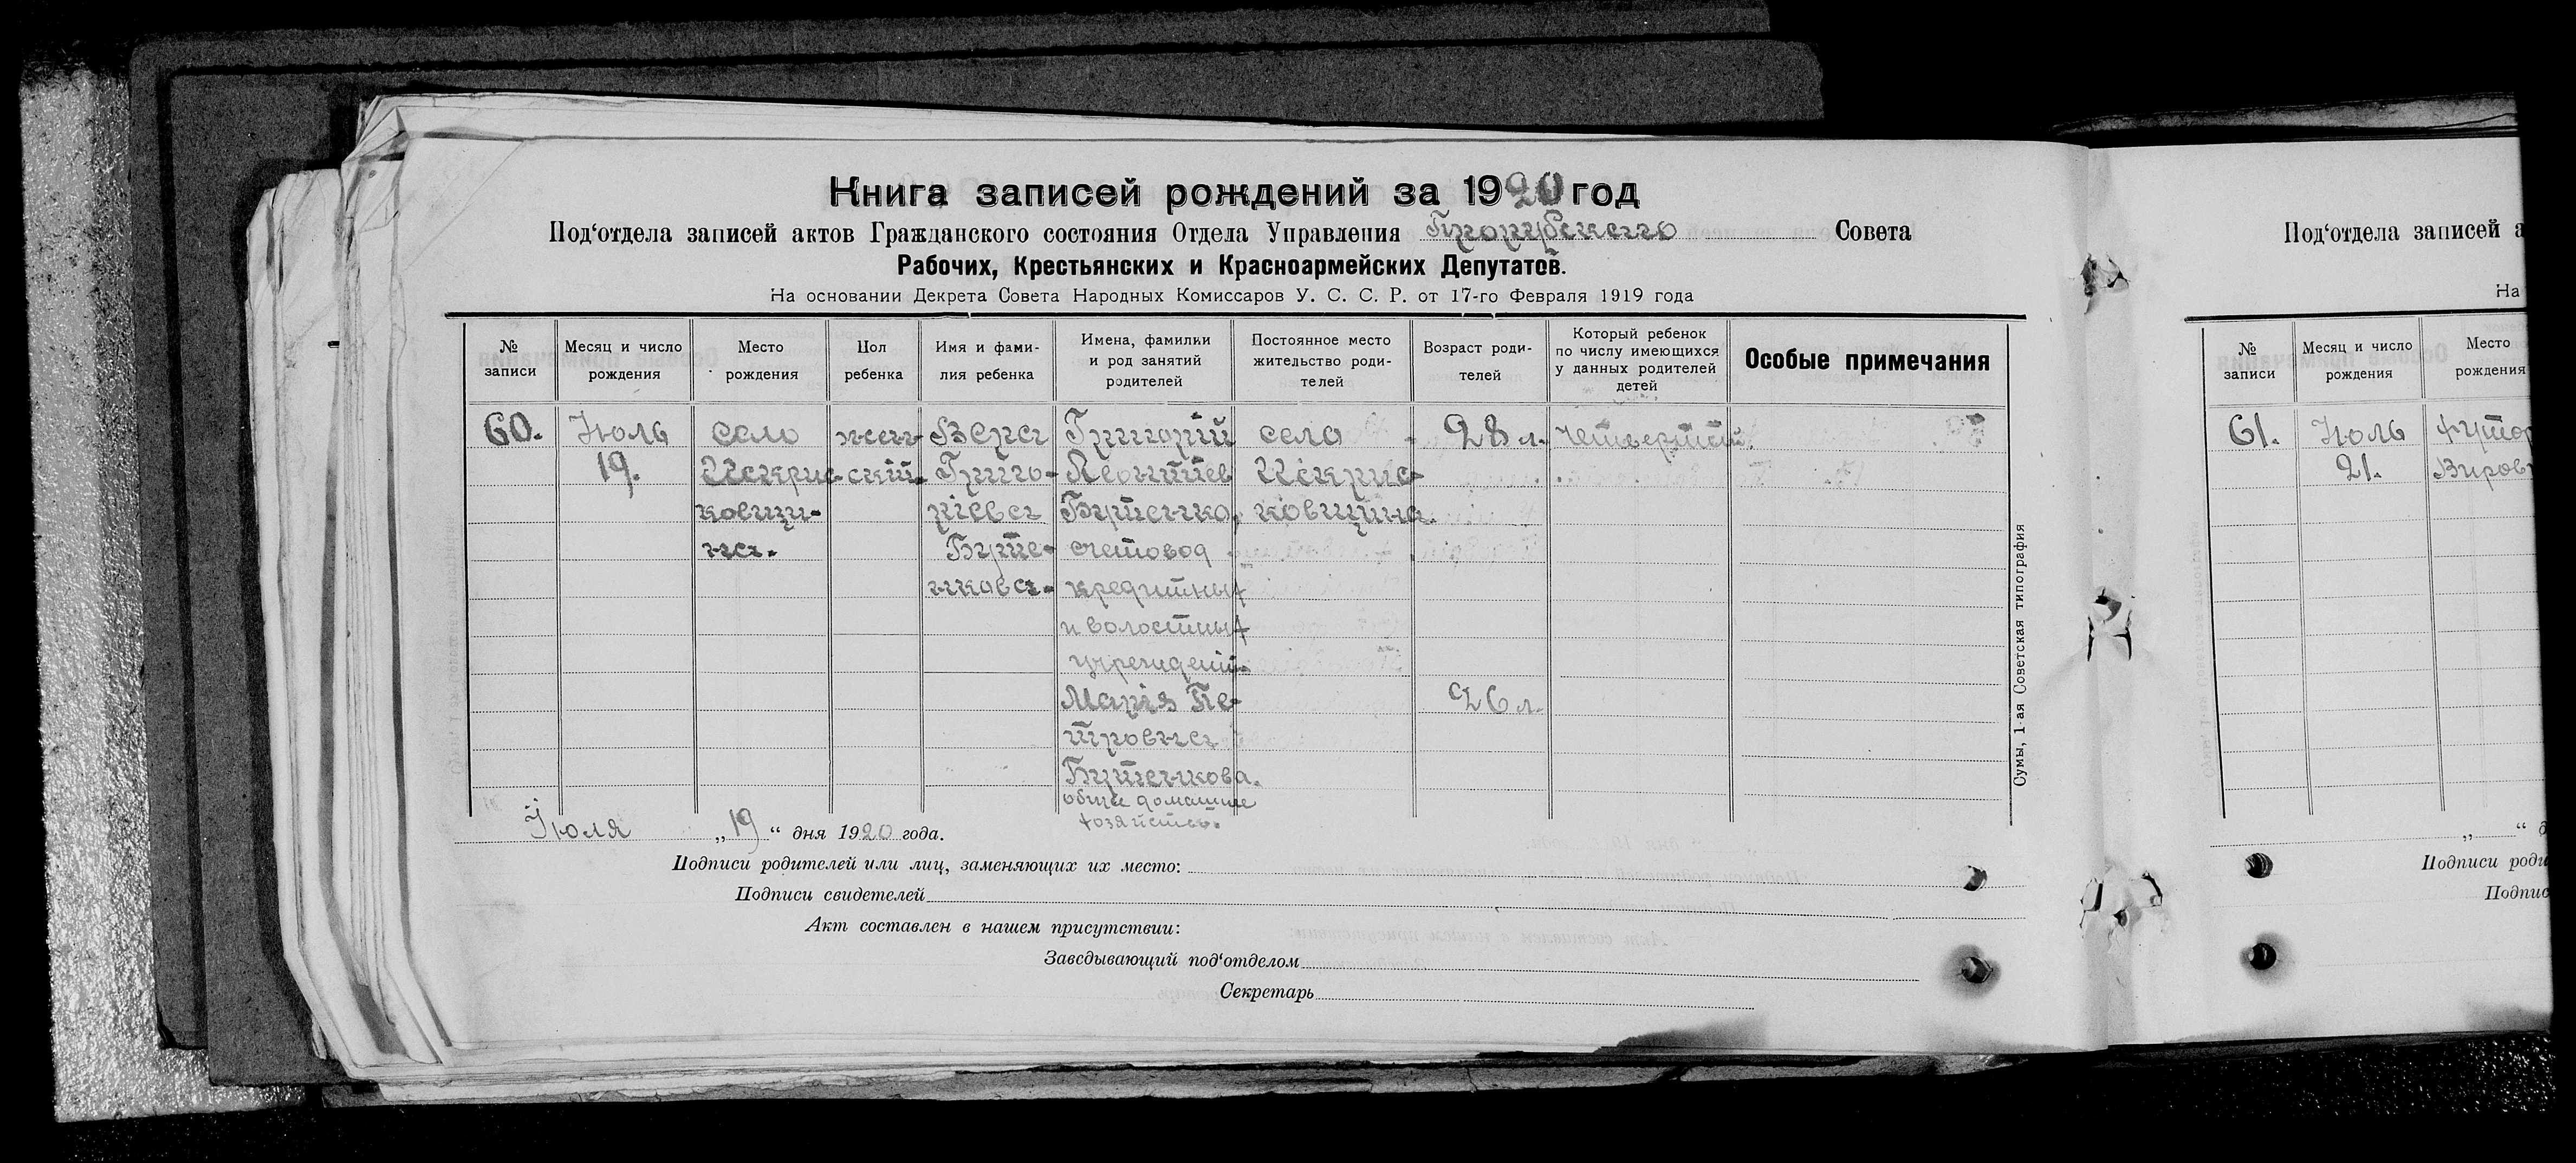 Книга записей рождений за 1920 год
Под‘отдела записей актов Гражданского состояния Отдела Управления Совета
Рабочих, Крестьянских и Красноармейских Депутатов.
На основании Декрета Совета Народных Комиссаров У. С. С. Р. от 17-го Февраля 1919 года
№ записи
Месяц и число рождения
Место рождения
Пол ребенка
Имя и фами-
лия ребенка
Имена, фамилии
и род занятий
родителей
Постоянное место
жительство роди-
телей
Возраст роди-
телей
Который ребенок
по числу имеющихся
у данных родителей
детей
Особые примечания
60.
Июль
19.
село
Искрис-
ковщи-
на.
жен-
ский.
Вера
Григо-
ріева
Буте-
нкова.
Григорій
Леонтіев
Бутенко,
счетовод
кредитных
и волостных
учрежденій.
Марія Пе-
тровна
Бутенкова.
общее домашнее
хозяйство.
село
Искрис-
ковщина.
28 л.
26 л.
четвертый.
Июля „19“ дня 1920 года.
Подписи родителей или лиц, заменяющих их место:
Подписи свидетелей
Акт составлен в нашем присутствии:
Заведывающий под‘отделом
Секретарь
Сумы, 1-ая Советская типография
Под‘отдела записей а
На
№ записи
Месяц и число рождения
Место рождения
61.
Июль
21.
хутор
Виров
„ “ д
Подписи роди
Подпис